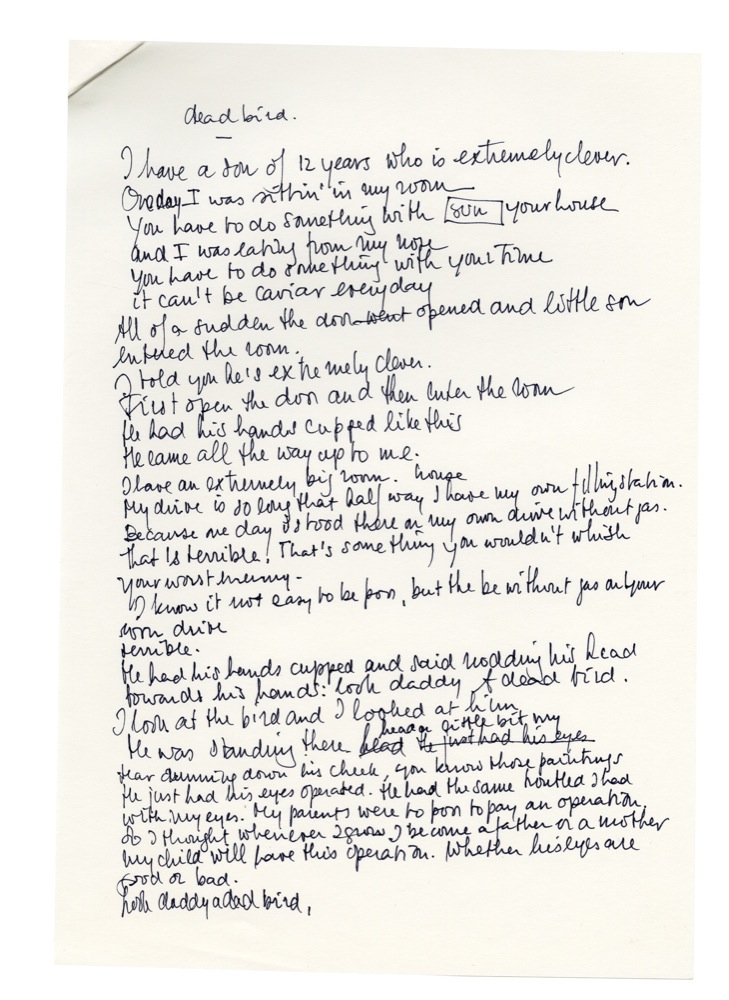 dead bird.
I have a son of 12 years who is extremely clever.
One day I was sittin' in my room
You have to do something with sun your house
and I was eating from my nose
You have to do something with your time
it can't be caviar everyday
All of a sudden the door went opened and little son
entered the room.
I told you he's extremely clever.
First open the door and then enter the room
He had his hands cupped like this
He came all the way up to me.
I have an extremely big room. house
My drive is so long that half way I have my own filling station.
Because one day I stood there on my own drive without gas.
That is terrible! That's something you wouldn't whish
your worst enemy -
I know it not easy to be poor, but the be without gas on your
own drive
terrible.
He had his hands cupped and said nodding his head
towards his hands: look daddy a dead bird.
I look at the bird and I looked at him
He was standing there head a little bit my
He just had his eyes
tear dumming down his cheek, you know those paintings
He just had his eyes operated. He had the same I had
with my eyes. My parents were to poor to pay an operation.
So I thought whenever I grow I become a father or a mother
my child will have this operation. Whether his eyes are
good or bad.
Look daddy a dead bird.